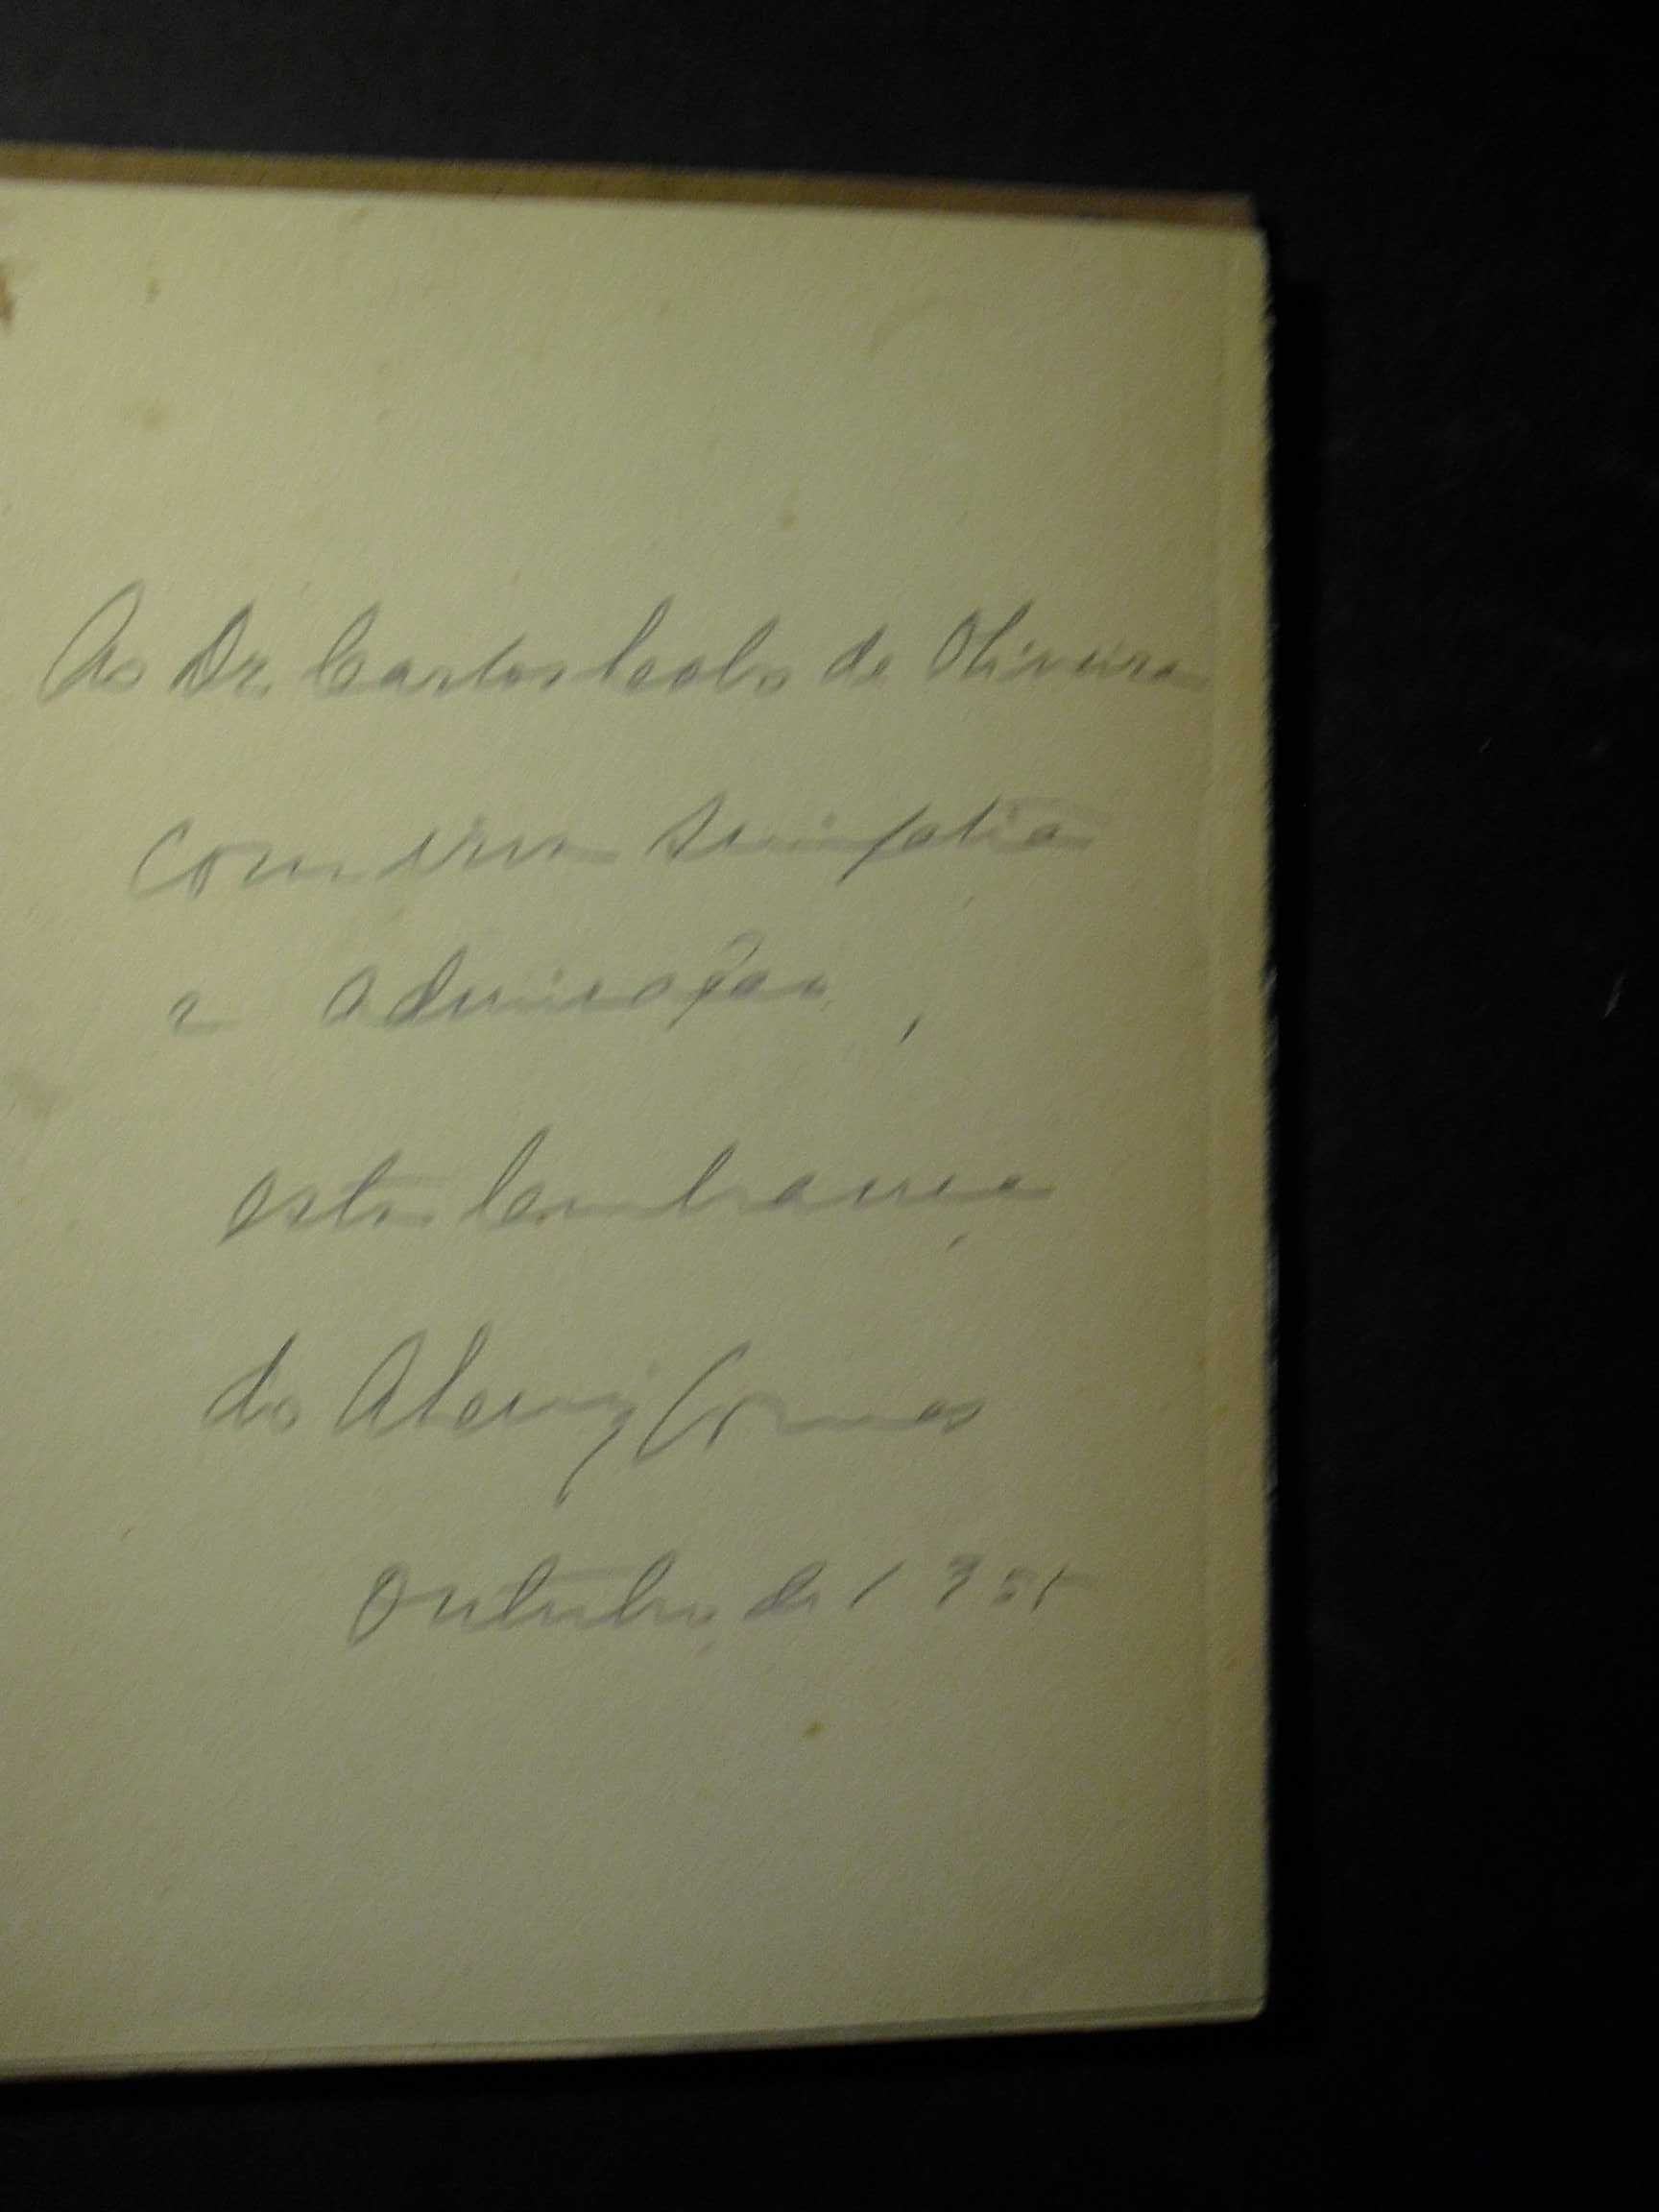 Ao Dr. Carlos Lobo de Oliveira
com viva simpatia
e admiração,
esta lembrança
do Gomes
Outubro de 1951